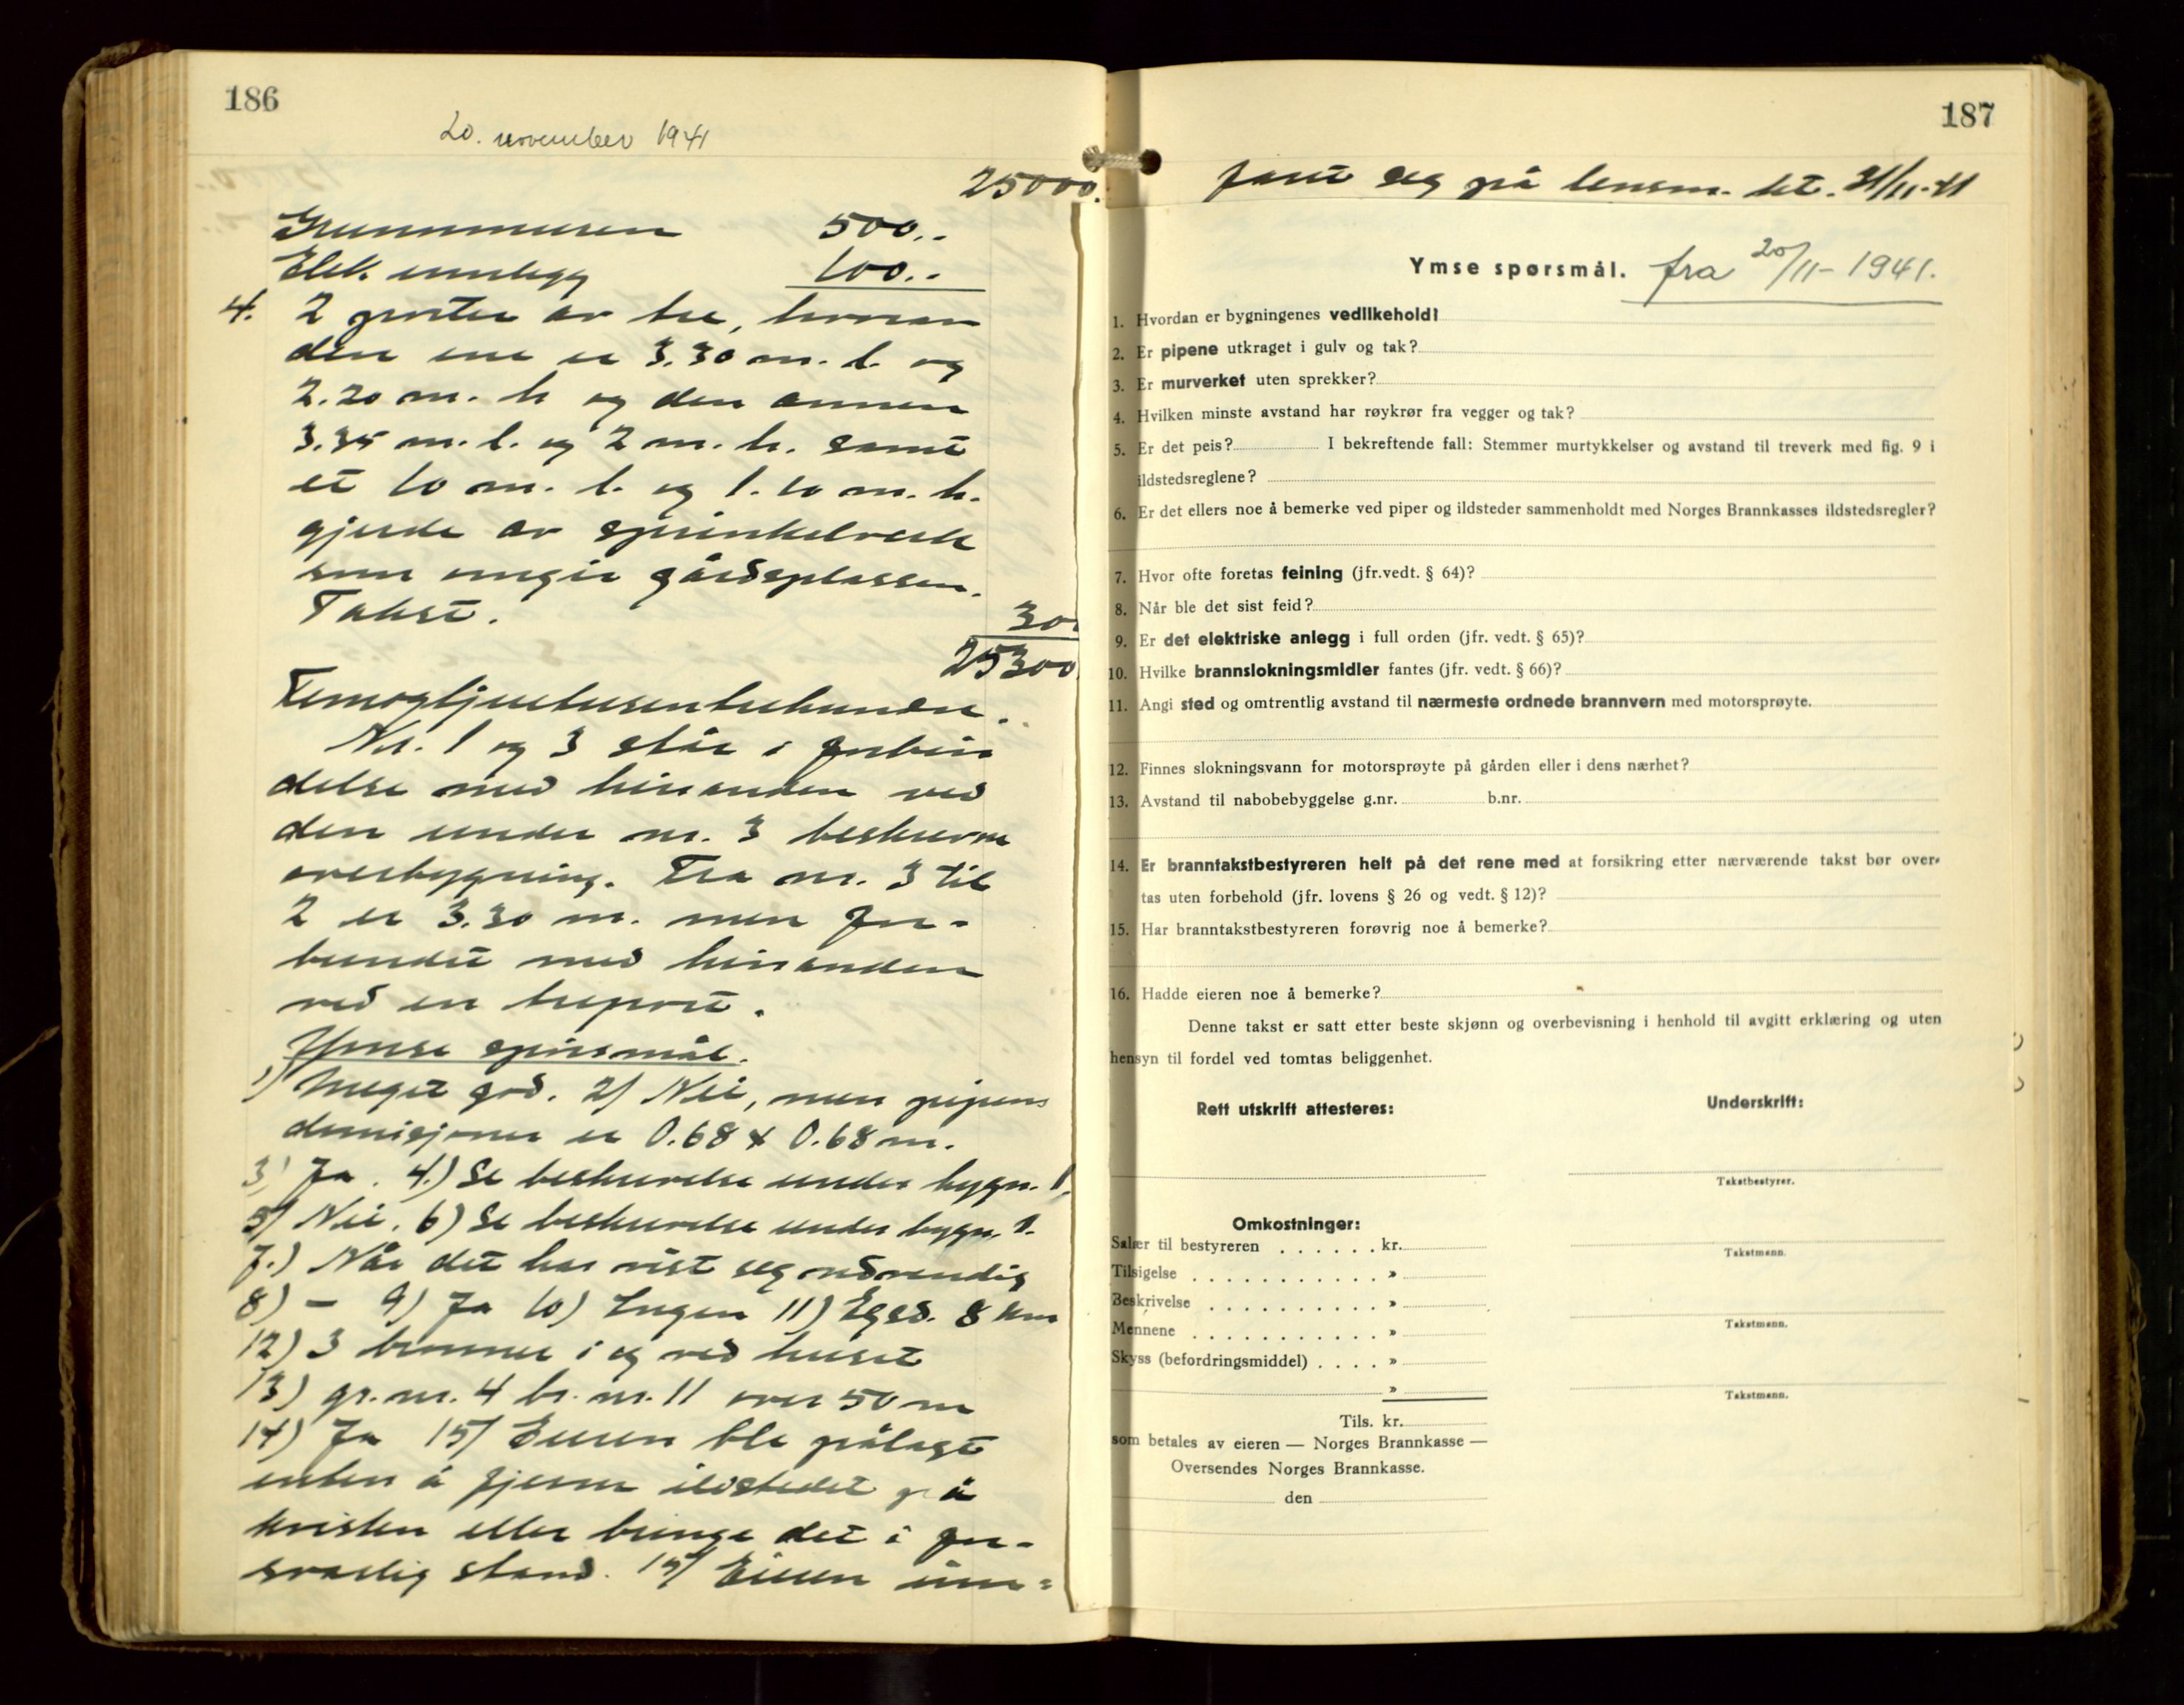 186
20. november 1941
25000.
Grunnmuren 500..
Elek. innlegg 100..
4. 2 porter av tre, hvorav
den ene er 3.30 m. l. og
2.20 m. h og den annen
3.35 m. l. og 2 m. h. samt
et 10 m. l. og 1.10 m. h.
gjerde av sprinkelverk
som omgir gårdsplassen.
Takst. 300
25300
Femogtjuetusentrehundre.
Nr. 1 og 3 står i forbin
delse med hinanden ved
den under nr. 3 beskrevne
overbygning. Fra nr. 3 til
2 er 3.30 m. men for-
bundet med hinanden
ved en treport.
Ymse spørsmål.
1) Meget god. 2) Nei, men pipens
demisjoner er 0.68 x 0.68 m.
3) Ja. 4.) Se beskrivelse under bygn. 1.
5) Nei. 6) Se beskrivelse under bygn. 1.
7.) Når det har vist seg nødvendig
8) — 9) Ja 10) Ingen 11) Egsd. 8 km
12) 3 brønner i og ved huset
13) gr. nr. 4 br. nr. 11 over 50 m
14) Ja 15) Eieren ble pålagt
enten å fjerne ildstedet på
kvisten eller bringe det i for-
svarlig stand. 15) Eieren
187
seg på lensm. kt.
Ymse spørsmål. fra 20/11-1941.
1. Hvordan er bygningenes vedlikehold?
2. Er pipene utkraget i gulv og tak?
3. Er murverket uten sprekker?
4. Hvilken minste avstand har røykrør fra vegger og tak?
5. Er det peis? I bekreftende fall: Stemmer murtykkelser og avstand til treverk med fig. 9 i
ildstedsreglene?
6. Er det ellers noe å bemerke ved piper og ildsteder sammenholdt med Norges Brannkasses ildstedsregler?
7. Hvor ofte foretas feining (jfr.vedt. § 64)?
8. Når ble det sist feid?
9. Er det elektriske anlegg i full orden (jfr. vedt. § 65)?
10. Hvilke brannslokningsmidler fantes (jfr. vedt. § 66)?
11. Angi sted og omtrentlig avstand til nærmeste ordnede brannvern med motorsprøyte.
12. Finnes slokningsvann for motorsprøyte på gården eller i dens nærhet?
13. Avstand til nabobebyggelse g.nr. b.nr.
14. Er branntakstbestyreren helt på det rene med at forsikring etter nærværende takst bør over-
tas uten forbehold (jfr. lovens § 26 og vedt. § 12)?
15. Har branntakstbestyreren forøvrig noe å bemerke?
16. Hadde eieren noe å bemerke?
Denne takst er satt etter beste skjønn og overbevisning i henhold til avgitt erklæring og uten
hensyn til fordel ved tomtas beliggenhet.
Rett utskrift attesteres:
Underskrift:
Takstbestyrer.
Omkostninger:
Salær til bestyreren . . . . . . kr.
Takstmann.
Tilsigelse . . . . . . . . . . . . »
Beskrivelse . . . . . . . . . . »
Mennene . . . . . . . . . . . . »
Takstmann.
Skyss (befordringsmiddel) . . . . »
»
Takstmann.
Tils. kr.
som betales av eieren — Norges Brannkasse —
Oversendes Norges Brannkasse.
den